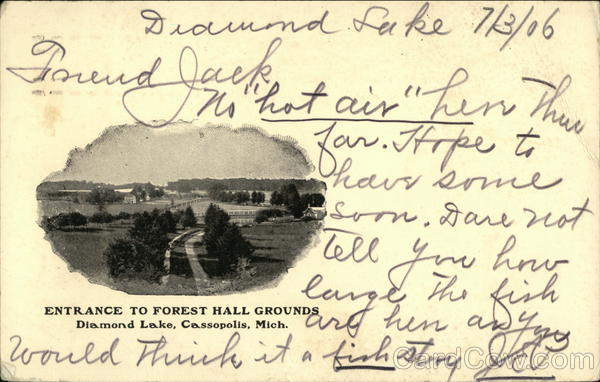 Diamond Lake 7/3/06
Friend Jack
No "hot air" here thus
far. Hope to
have some
soon. Dare not
tell you how
large the fish
are here as you
would think it a fish story
ENTRANCE TO FOREST HALL GROUNDS
Diamond Lake, Cassopolis, Mich.
CardCow.com